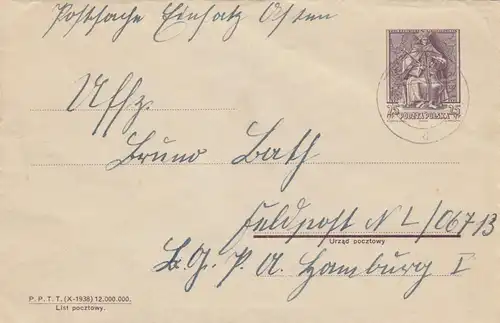 Postsache Einsatz Osten
25 25
POCZTA POLSKA
Uffz.
Bruno Bath
Feldpost N L/06713
Urząd pocztowy
L.G.P.A. Hamburg I
P. P. T. T. (X-1938) 12.000.000.
List pocztowy.